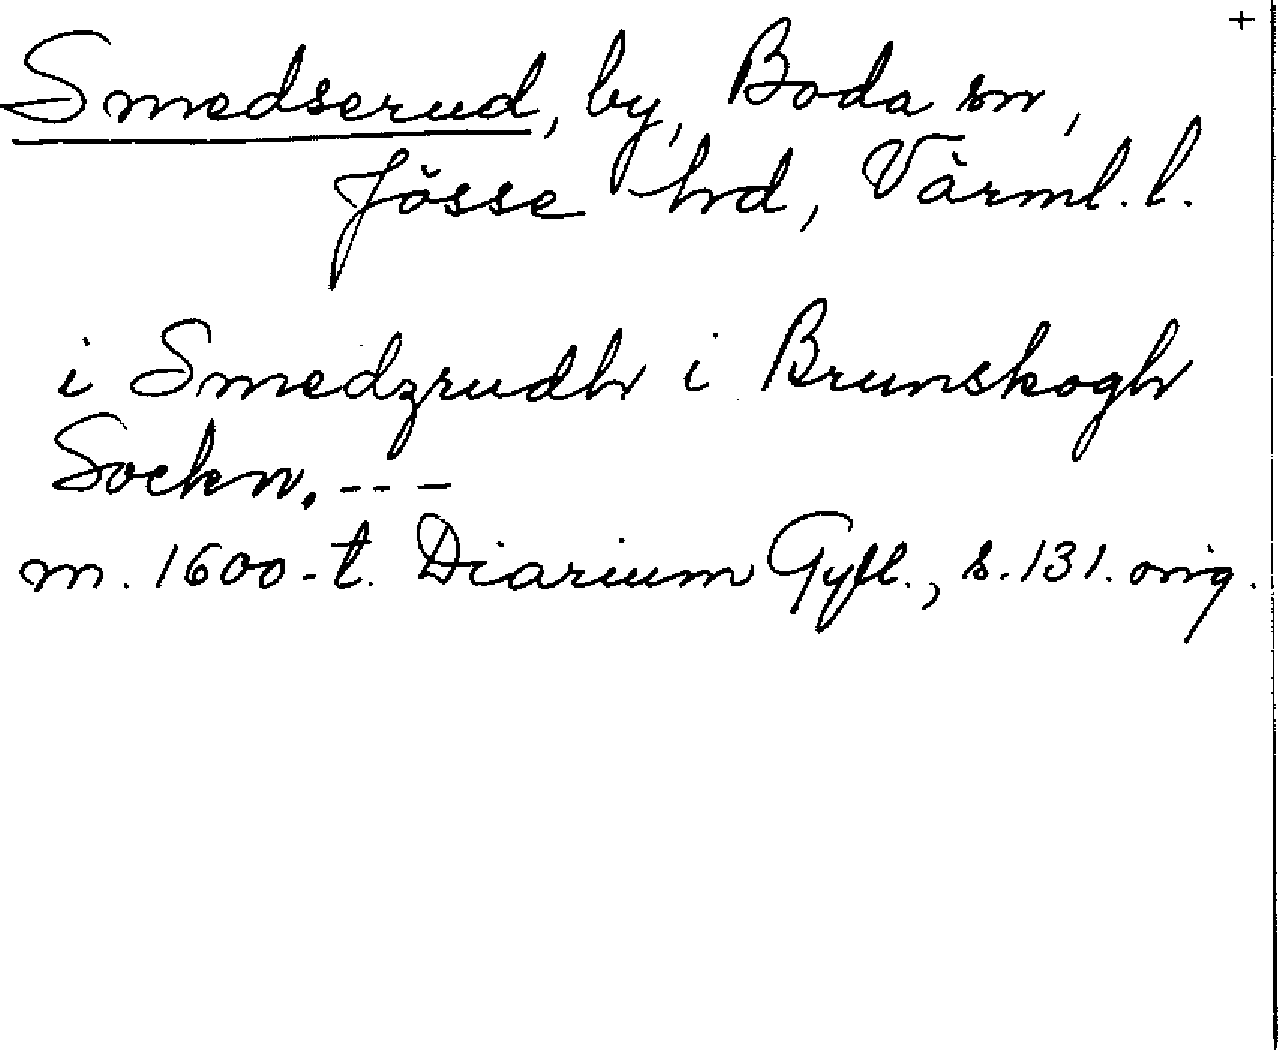 +
Smedserud, by, Boda sn,
Jösse hd, Värml. l.
i Smedzrudh i Brunskogh
Sockn. ---
m. 1600-t. Diarium Gyll., s. 131. orig.